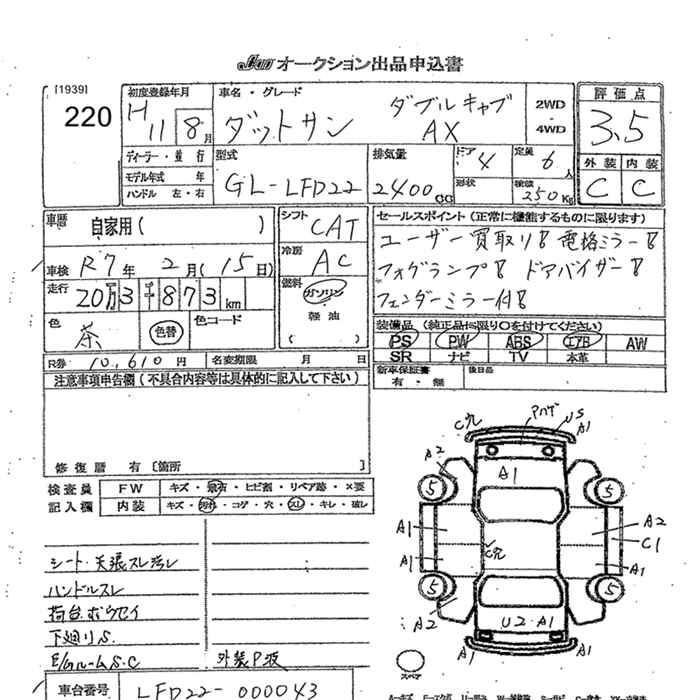 JU オークション出品申込書
[1939]
220
初度登録年月
H 11 8月
車名・グレード
ダットサン ダブルキャブ AX
2WD・4WD
評価点
3.5
外装 内装
C C
ディーラー・並行
モデル年式 年
ハンドル 左・右
型式
GL-LFD22
排気量
2400cc
ドア 4
形状
定員 6人
積載 250Kg
車歴 自家用( )
シフト CAT
セールスポイント(正常に機能するものに限ります)
ユーザー買取り! 電格ミラー!
フォグランプ! ドアバイザー!
フェンダーミラー付!
車検 R7年 2月(15日)
冷房 AC
走行 20万3千873km
燃料 ガソリン
軽油
( )
色 茶 色替 色コード
装備品(純正品に限り○を付けてください)
PS PW ABS エアB AW
SR ナビ TV 本革
R券 10,610円 名変期限 月 日
新車保証書 有・無 後日品
注意事項申告欄(不具合内容等は具体的に記入して下さい)
修復歴 有〔箇所
検査員 FW キズ・飛石・ヒビ割・リペア跡・×要
記入欄 内装 キズ・汚れ・コゲ・穴・スレ・キレ・破レ
シート・天張スレ汚レ
ハンドルスレ
荷台ボウセイ
下廻りS.
E/GルームS.C 外装P波
車台番号 LFD22-000043
C穴 アハゲ US A1
A2 A1
5 5
A1 A2
C1
A1 C穴 A1
5 5
A2 U2・A1
A1 A1
スペア